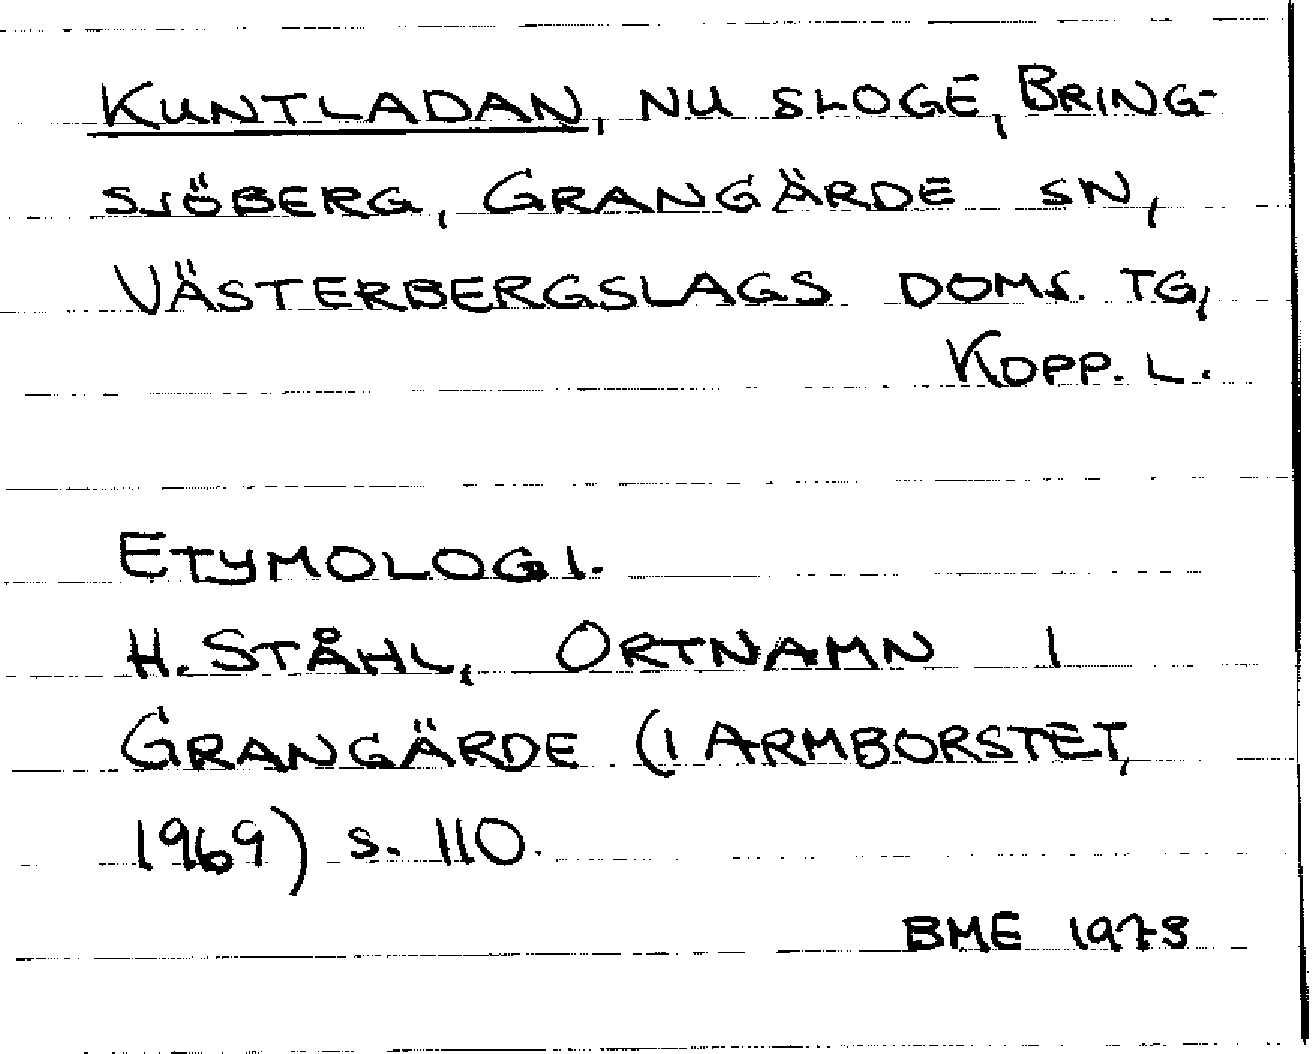 KUNTLADAN, NU SLOGE, BRING-
SJÖBERG, GRANGÄRDE SN,
VÄSTERBERGSLAGS DOMS. TG,
KOPP. L.
ETYMOLOGI.
H. STÅHL, ORTNAMN I
GRANGÄRDE (I ARMBORSTET,
1969) S. 110.
BME 1973